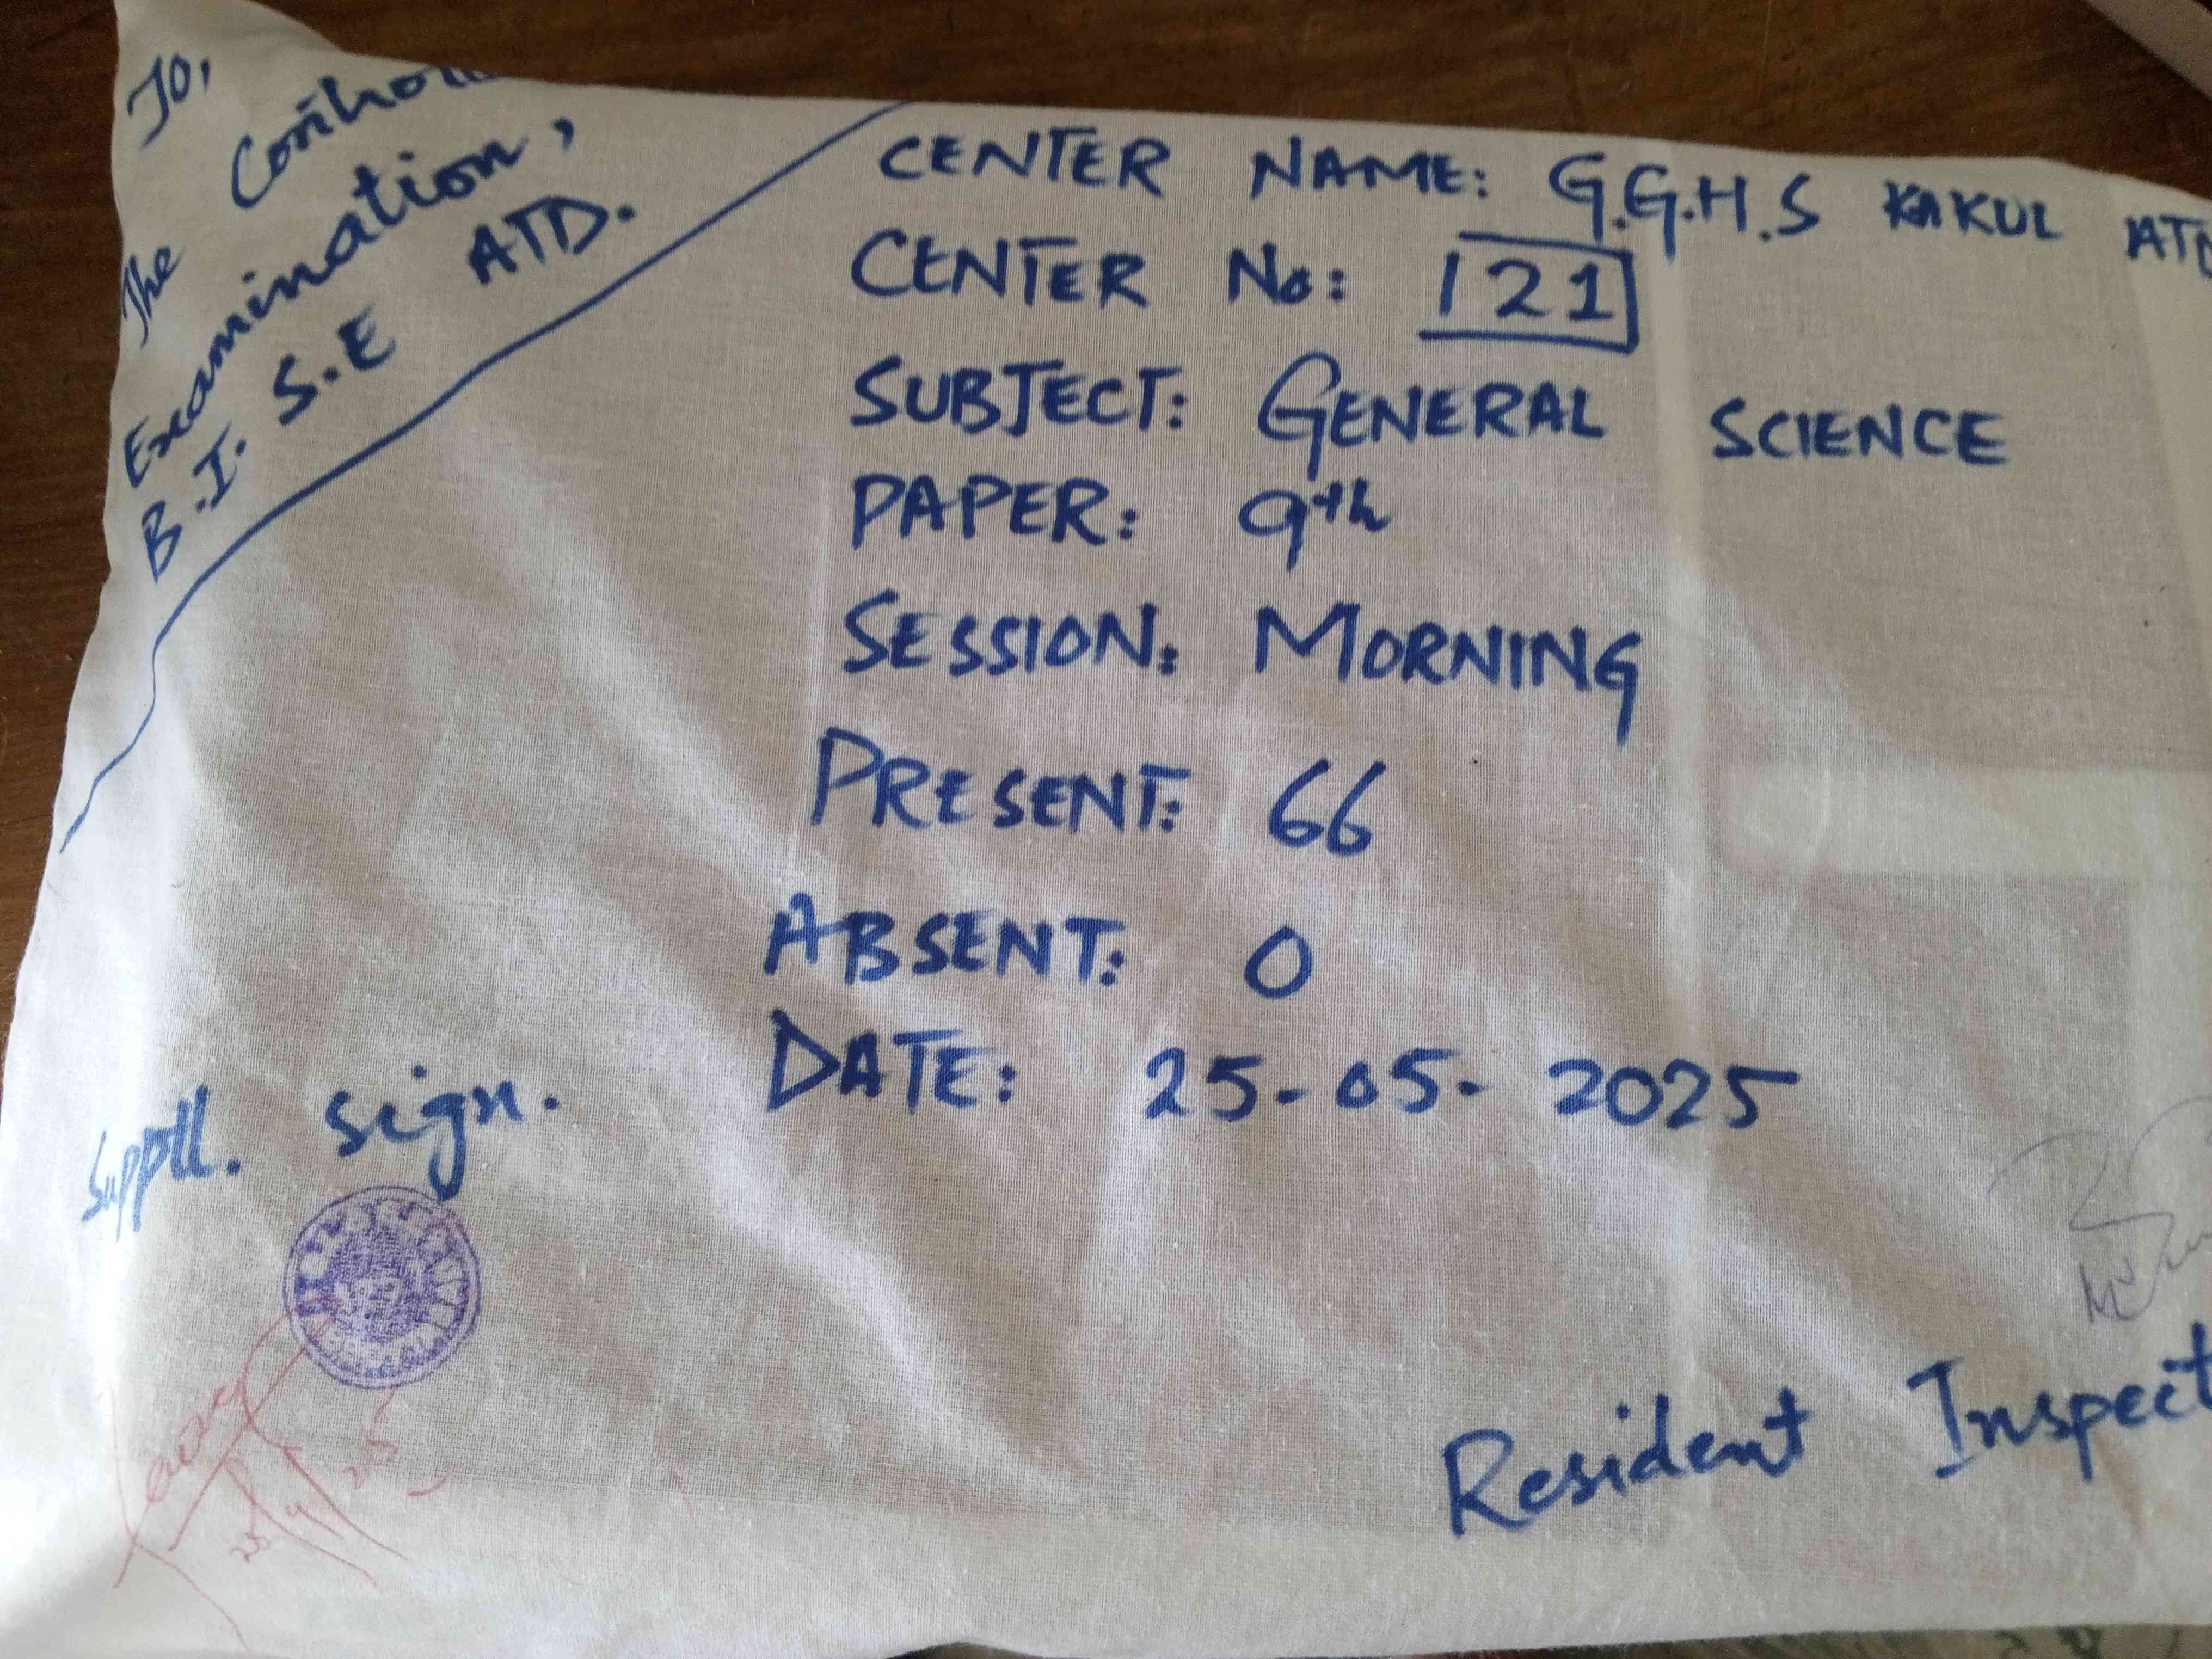 To,
The Controll
Examination,
B.I.S.E ATD.
CENTER NAME: G.G.H.S KAKUL ATD
CENTER No: 121
SUBJECT: GENERAL SCIENCE
PAPER: 9th
SESSION: MORNING
PRESENT: 66
ABSENT: 0
DATE: 25-05-2025
Suppll. sign.
Resident Inspect